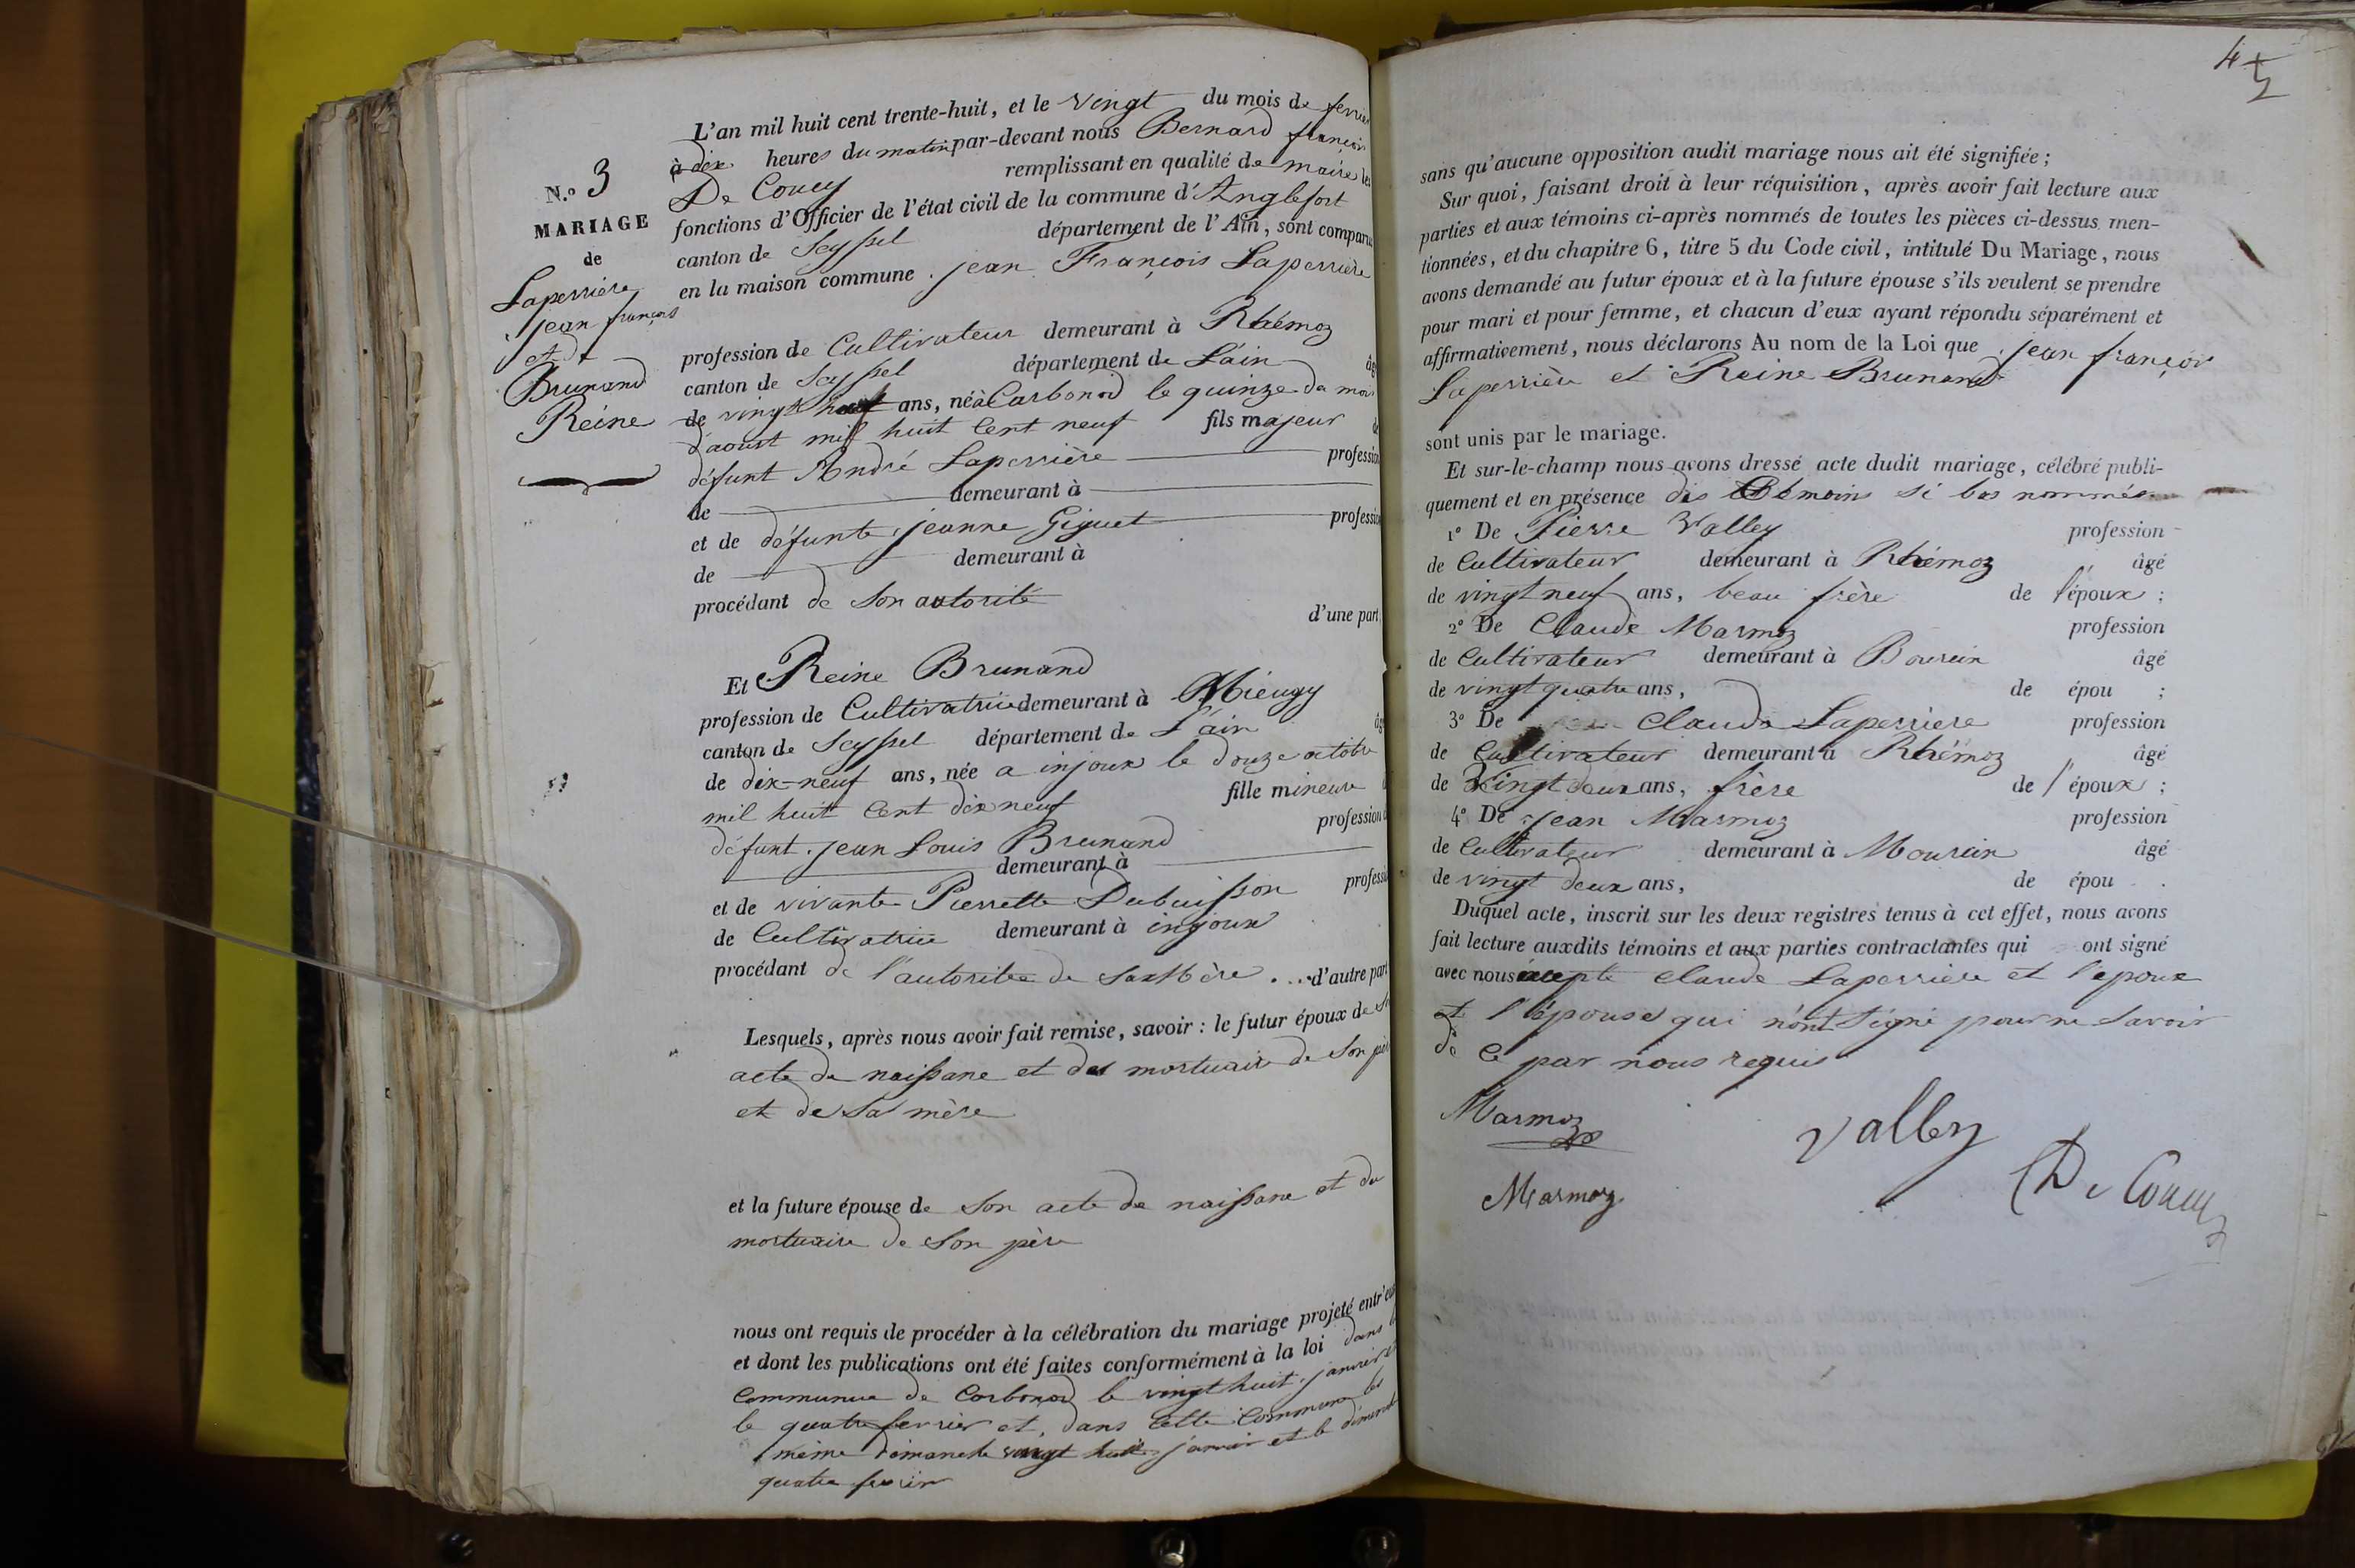 N.o 3
MARIAGE
de
Laperrière
jean françois
et de
Brunand
Reine
L'an mil huit cent trente-huit, et le vingt du mois de fevrier
à dix heures du matin par-devant nous Bernard françois
De Coucy remplissant en qualité de maire les
fonctions d'Officier de l'état civil de la commune d'Anglefort
canton de Seyssel département de l'Ain, sont comparu
en la maison commune jean François Laperrière
profession de Cultivateur demeurant à Rhémoz
canton de Seyssel département de L'ain âg
de vingt huit ans, né à Carbonod le quinze du mois
d'aoust mil huit Cent neuf fils majeur de
défunt André Laperrière profession
de demeurant à
et de défunte jeanne Giguet profession
de demeurant à
procédant de Son autorité
d'une part
Et Reine Brunand
profession de Cultivatrice demeurant à Miengy
canton de Seyssel département de L'ain âg
de dix-neuf ans, née a injoux le douze octobre
mil huit Cent dix neuf fille mineure d
défunt jean Louis Brunand profession d
demeurant à
et de vivante Pierrette Dubuisson professio
de Cultivatrice demeurant à injoux
procédant de l'autorité de Sa Mère ...d'autre part
Lesquels, après nous avoir fait remise, savoir : le futur époux de son
acte de naissane et des mortuaire de Son père
et de Sa mère
et la future épouse de Son acte de naissane et du
mortuaire de Son père
nous ont requis de procéder à la célébration du mariage projeté entr'eux
et dont les publications ont été faites conformément à la loi dans la
Commune de Corbonod le vingt huit janvier et
le quatre fevrier et, dans Cette Commune les
même dimanche vingt huit janvier et le dimanche
quatre fevrier
4
sans qu'aucune opposition audit mariage nous ait été signifiée ;
Sur quoi, faisant droit à leur réquisition, après avoir fait lecture aux
parties et aux témoins ci-après nommés de toutes les pièces ci-dessus men-
tionnées, et du chapitre 6, titre 5 du Code civil, intitulé Du Mariage, nous
avons demandé au futur époux et à la future épouse s'ils veulent se prendre
pour mari et pour femme, et chacun d'eux ayant répondu séparément et
affirmativement, nous déclarons Au nom de la Loi que jean françois
Laperrière et Reine Brunand
sont unis par le mariage.
Et sur-le-champ nous avons dressé acte dudit mariage, célébré publi-
quement et en présence des témoins si bas nommés
1° De Pierre Valley profession
de Cultivateur demeurant à Rhémoz âgé
de vingt neuf ans, beau frère de l'époux ;
2° De Claude Marmoz profession
de Cultivateur demeurant à Bourcin âgé
de vingt quatre ans, de épou ;
3° De Claude Laperriere profession
de Cultivateur demeurant à Rhémoz âgé
de Vingt deux ans, frère de l'époux ;
4° De jean Marmoz profession
de Cultivateur demeurant à Mourcin âgé
de vingt deux ans, de épou .
Duquel acte, inscrit sur les deux registres tenus à cet effet, nous avons
fait lecture auxdits témoins et aux parties contractantes qui ont signé
avec nous excepte Claude Laperriere et l'epoux
et l'épouse qui n'ont Signé pour ne Savoir
de Ce par nous requis
Marmoz
Valley
De Coucy
Marmoz